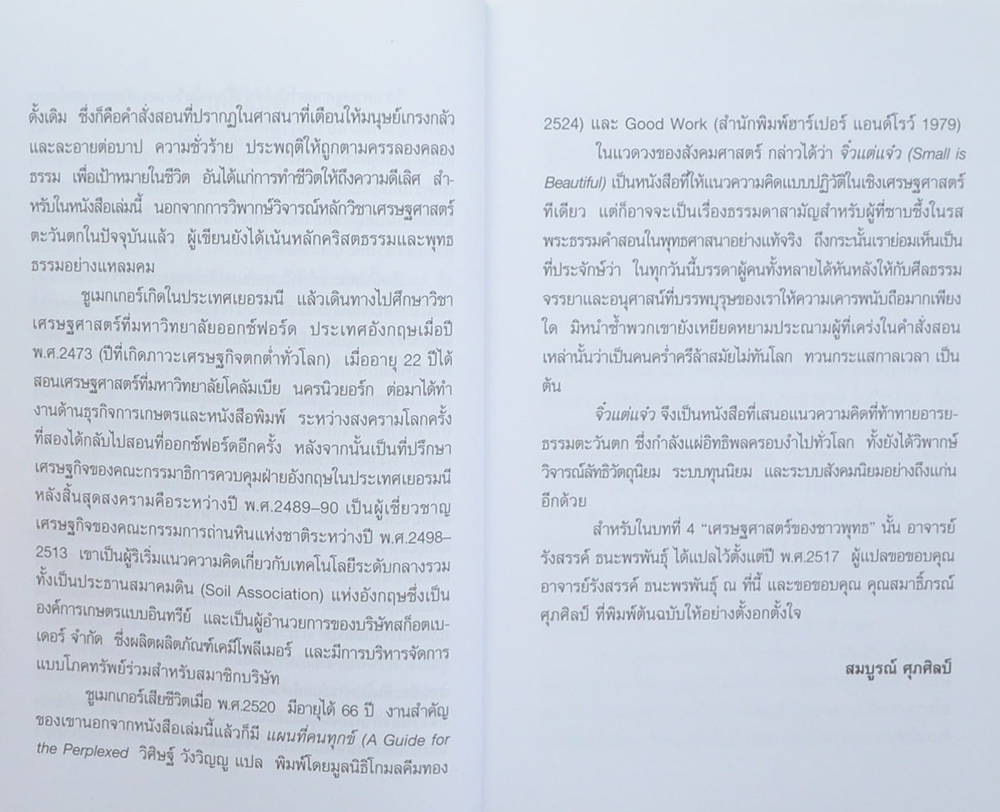 ดั้งเดิม ซึ่งก็คือคำสั่งสอนที่ปรากฏในศาสนาที่เตือนให้มนุษย์เกรงกลัว
และละอายต่อบาป ความชั่วร้าย ประพฤติให้ถูกตามครรลองคลอง
ธรรม เพื่อเป้าหมายในชีวิต อันได้แก่การทำชีวิตให้ถึงความดีเลิศ สำ-
หรับในหนังสือเล่มนี้ นอกจากการวิพากษ์วิจารณ์หลักวิชาเศรษฐศาสตร์
ตะวันตกในปัจจุบันแล้ว ผู้เขียนยังได้เน้นหลักคริสตธรรมและพุทธ
ธรรมอย่างแหลมคม
ชูเมกเกอร์เกิดในประเทศเยอรมนี แล้วเดินทางไปศึกษาวิชา
เศรษฐศาสตร์ที่มหาวิทยาลัยออกซ์ฟอร์ด ประเทศอังกฤษเมื่อปี
พ.ศ.2473 (ปีที่เกิดภาวะเศรษฐกิจตกต่ำทั่วโลก) เมื่ออายุ 22 ปีได้
สอนเศรษฐศาสตร์ที่มหาวิทยาลัยโคลัมเบีย นครนิวยอร์ก ต่อมาได้ทำ
งานด้านธุรกิจการเกษตรและหนังสือพิมพ์ ระหว่างสงครามโลกครั้ง
ที่สองได้กลับไปสอนที่ออกซ์ฟอร์ดอีกครั้ง หลังจากนั้นเป็นที่ปรึกษา
เศรษฐกิจของคณะกรรมาธิการควบคุมฝ่ายอังกฤษในประเทศเยอรมนี
หลังสิ้นสุดสงครามคือระหว่างปี พ.ศ.2489–90 เป็นผู้เชี่ยวชาญ
เศรษฐกิจของคณะกรรมการถ่านหินแห่งชาติระหว่างปี พ.ศ.2498–
2513 เขาเป็นผู้ริเริ่มแนวความคิดเกี่ยวกับเทคโนโลยีระดับกลางรวม
ทั้งเป็นประธานสมาคมดิน (Soil Association) แห่งอังกฤษซึ่งเป็น
องค์การเกษตรแบบอินทรีย์ และเป็นผู้อำนวยการของบริษัทสก็อตเบ-
เดอร์ จำกัด ซึ่งผลิตผลิตภัณฑ์เคมีโพลีเมอร์ และมีการบริหารจัดการ
แบบโภคทรัพย์ร่วมสำหรับสมาชิกบริษัท
ชูเมกเกอร์เสียชีวิตเมื่อ พ.ศ.2520 มีอายุได้ 66 ปี งานสำคัญ
ของเขานอกจากหนังสือเล่มนี้แล้วก็มี แผนที่คนทุกข์ (A Guide for
the Perplexed วิศิษฐ์ วังวิญญู แปล พิมพ์โดยมูลนิธิโกมลคีมทอง
2524) และ Good Work (สำนักพิมพ์ฮาร์เปอร์ แอนด์โรว์ 1979)
ในแวดวงของสังคมศาสตร์ กล่าวได้ว่า จิ๋วแต่แจ๋ว (Small is
Beautiful) เป็นหนังสือที่ให้แนวความคิดแบบปฏิวัติในเชิงเศรษฐศาสตร์
ทีเดียว แต่ก็อาจจะเป็นเรื่องธรรมดาสามัญสำหรับผู้ที่ซาบซึ้งในรส
พระธรรมคำสอนในพุทธศาสนาอย่างแท้จริง ถึงกระนั้นเราย่อมเห็นเป็น
ที่ประจักษ์ว่า ในทุกวันนี้บรรดาผู้คนทั้งหลายได้หันหลังให้กับศีลธรรม
จรรยาและอนุศาสน์ที่บรรพบุรุษของเราให้ความเคารพนับถือมากเพียง
ใด มิหนำซ้ำพวกเขายังเหยียดหยามประณามผู้ที่เคร่งในคำสั่งสอน
เหล่านั้นว่าเป็นคนคร่ำครึล้าสมัยไม่ทันโลก ทวนกระแสกาลเวลา เป็น
ต้น
จิ๋วแต่แจ๋ว จึงเป็นหนังสือที่เสนอแนวความคิดที่ท้าทายอารย-
ธรรมตะวันตก ซึ่งกำลังแผ่อิทธิพลครอบงำไปทั่วโลก ทั้งยังได้วิพากษ์
วิจารณ์ลัทธิวัตถุนิยม ระบบทุนนิยม และระบบสังคมนิยมอย่างถึงแก่น
อีกด้วย
สำหรับในบทที่ 4 “เศรษฐศาสตร์ของชาวพุทธ” นั้น อาจารย์
รังสรรค์ ธนะพรพันธุ์ ได้แปลไว้ตั้งแต่ปี พ.ศ.2517 ผู้แปลขอขอบคุณ
อาจารย์รังสรรค์ ธนะพรพันธุ์ ณ ที่นี้ และขอขอบคุณ คุณสมาธิ์ภรณ์
ศุภศิลป์ ที่พิมพ์ต้นฉบับให้อย่างตั้งอกตั้งใจ
สมบูรณ์ ศุภศิลป์